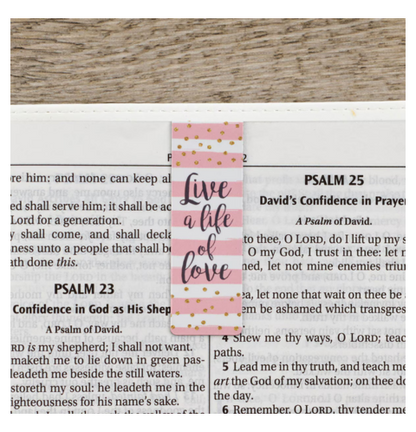 2
Live
a life
of
love
re him: and none can keep
ed shall serve him; it shall be
Lord for a generation.
shall come, and shall
ness unto a people that shall
ath done this.
PSALM 23
Confidence in God as His
A Psalm of David.
is my shepherd; I shall not want.
maketh me to lie down in green pas-
leadeth me beside the still waters.
storeth my soul: he leadeth me in the
ighteousness for his name's sake.
PSALM 25
David's Confidence in Prayer
A Psalm of David.
to thee, O LORD, do I lift up my s
O my God, I trust in thee: let
ned, let not mine enemies
ea, let none that wait on thee be
em be ashamed which transgres
4 Shew me thy ways, O LORD; teac
paths.
5 Lead me in thy truth, and teach me
art the God of my salvation; on thee do
the day.
6 Remember, O LORD, thy tender me